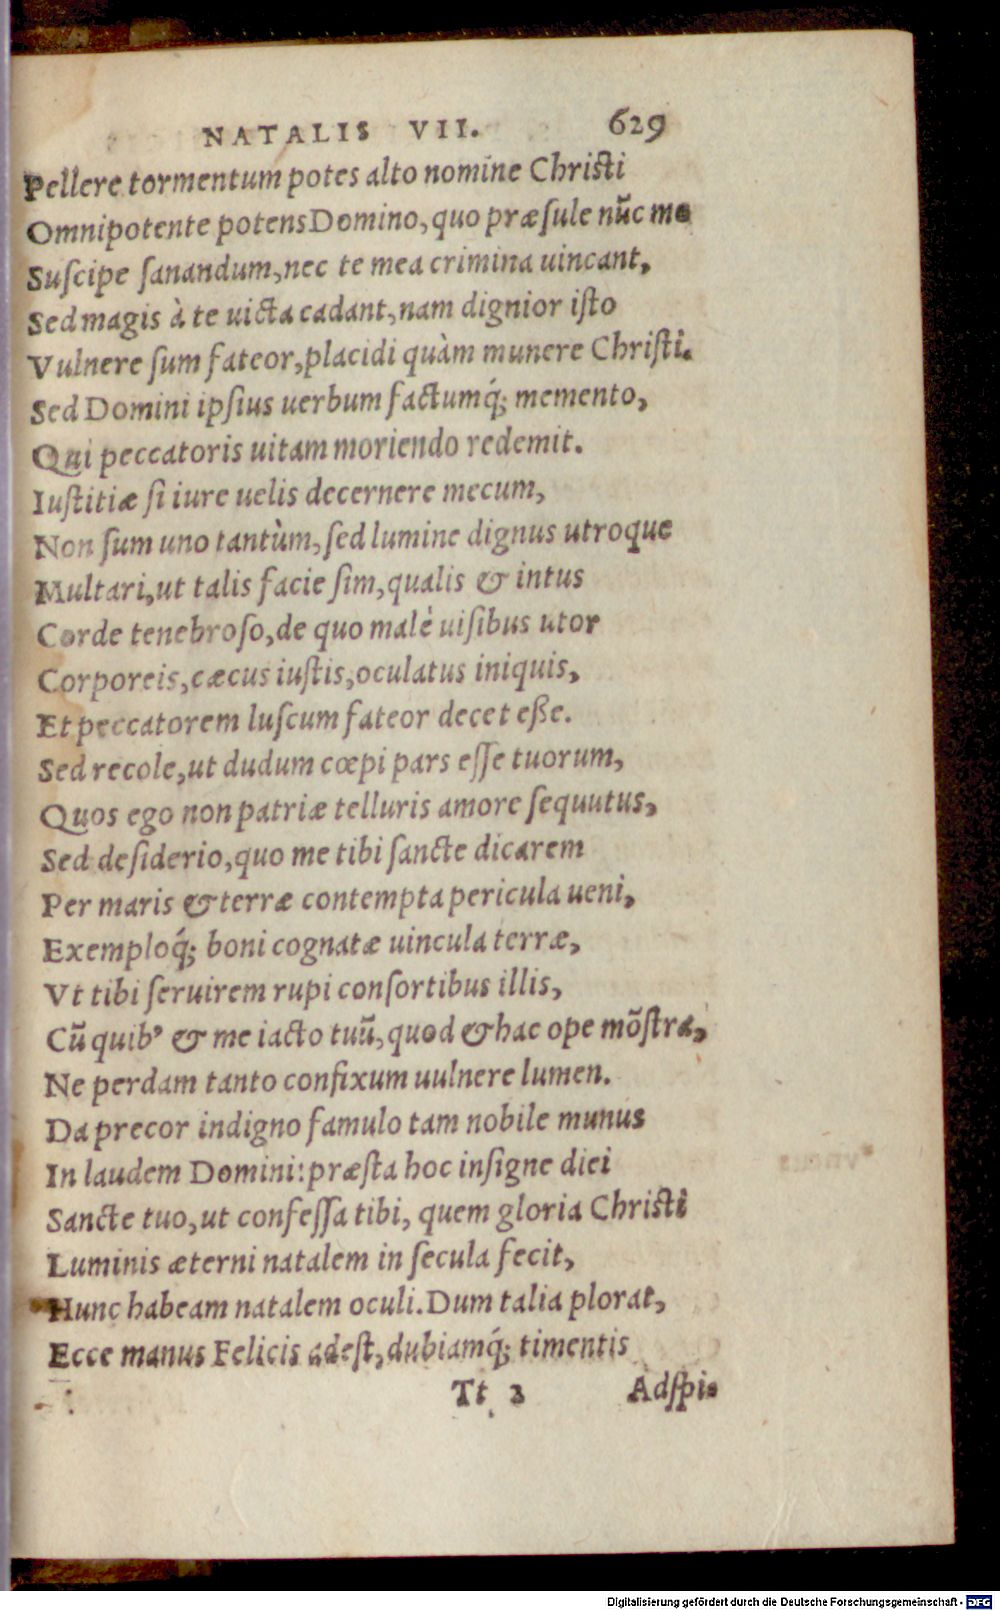 NATALIS VII. 629
Pellere tormentum potes alto nomine Christi
Omnipotente potens Domino, quo præſule nũc me
Suſcipe ſanandum, nec te mea crimina uincant,
Sed magis à te uicta cadant, nam dignior iſto
Vulnere ſum fateor, placidi quàm munere Chriſti.
Sed Domini ipſius uerbum factumq́; memento,
Qui peccatoris uitam moriendo redemit.
Iuſtitiæ ſi iure uelis decernere mecum,
Non ſum uno tantùm, ſed lumine dignus utroque
Multari, ut talis facie ſim, qualis & intus
Corde tenebroſo, de quo malè uiſibus utor
Corporeis, cæcus iuſtis, oculatus iniquis,
Et peccatorem luſcum fateor decet eße.
Sed recole, ut dudum cœpi pars eſſe tuorum,
Quos ego non patriæ telluris amore ſequutus,
Sed deſiderio, quo me tibi ſancte dicarem
Per maris & terræ contempta pericula ueni,
Exemploq́; boni cognatæ uincula terræ,
Vt tibi ſeruirem rupi conſortibus illis,
Cũ quib᾽ & me iacto tuũ, quod & hac ope mõſtra,
Ne perdam tanto confixum uulnere lumen.
Da precor indigno famulo tam nobile munus
In laudem Domini: præſta hoc inſigne diei
Sancte tuo, ut confeſſa tibi, quem gloria Chriſti
Luminis æterni natalem in ſecula fecit,
Hunc habeam natalem oculi. Dum talia plorat,
Ecce manus Felicis adeſt, dubiamq́; timentis
Tt 2 Adſpi-
Digitalisierung gefördert durch die Deutsche Forschungsgemeinschaft - DFG